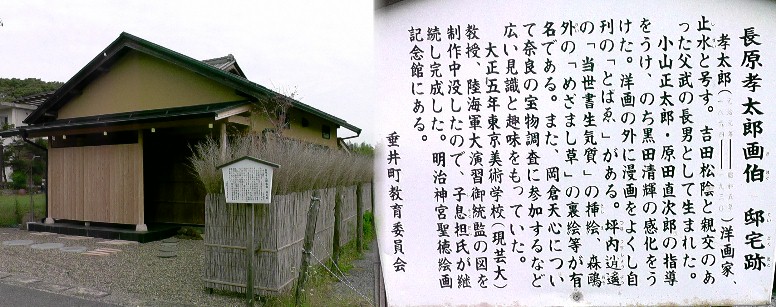 長原孝太郎画伯 邸宅跡
孝太郎(
)洋画家、
止水と号す。吉田松陰と親交のあ
った父武の長男として生まれた。
小山正太郎・原田直次郎の指導
をうけ、のち黒田清輝の感化をう
けた。洋画の外に漫画をよくし自
刊の「とはゑ」がある。坪内逍遥
の「当世書生気質」の挿絵、森鷗
外の「めざまし草」の裏絵等が有
名である。また、岡倉天心につい
て奈良の宝物調査に参加するなど
広い見識と趣味をもっていた。
大正五年東京美術学校(現芸大)
教授、陸海軍大演習御統監の図を
制作中没したので、子息担氏が継
続し完成した。明治神宮聖徳絵画
記念館にある。
垂井町教育委員会